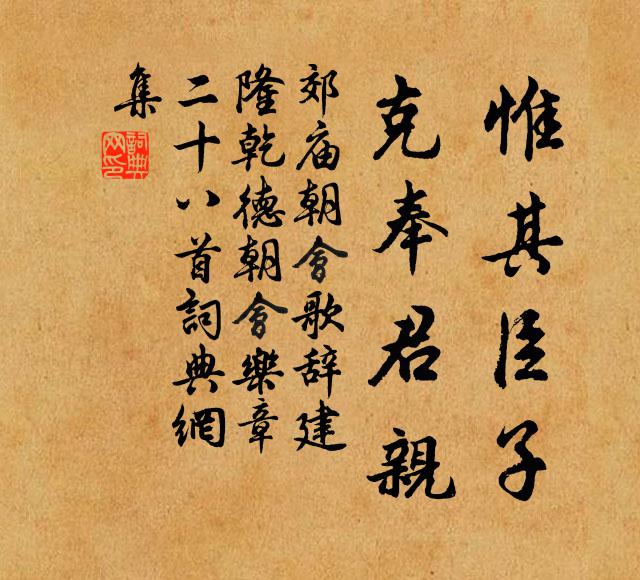 惟其臣子
克奉君親
郊庙朝會歌辞建
隆乾德朝會樂章
二十八首詞典網
集
詞典網印